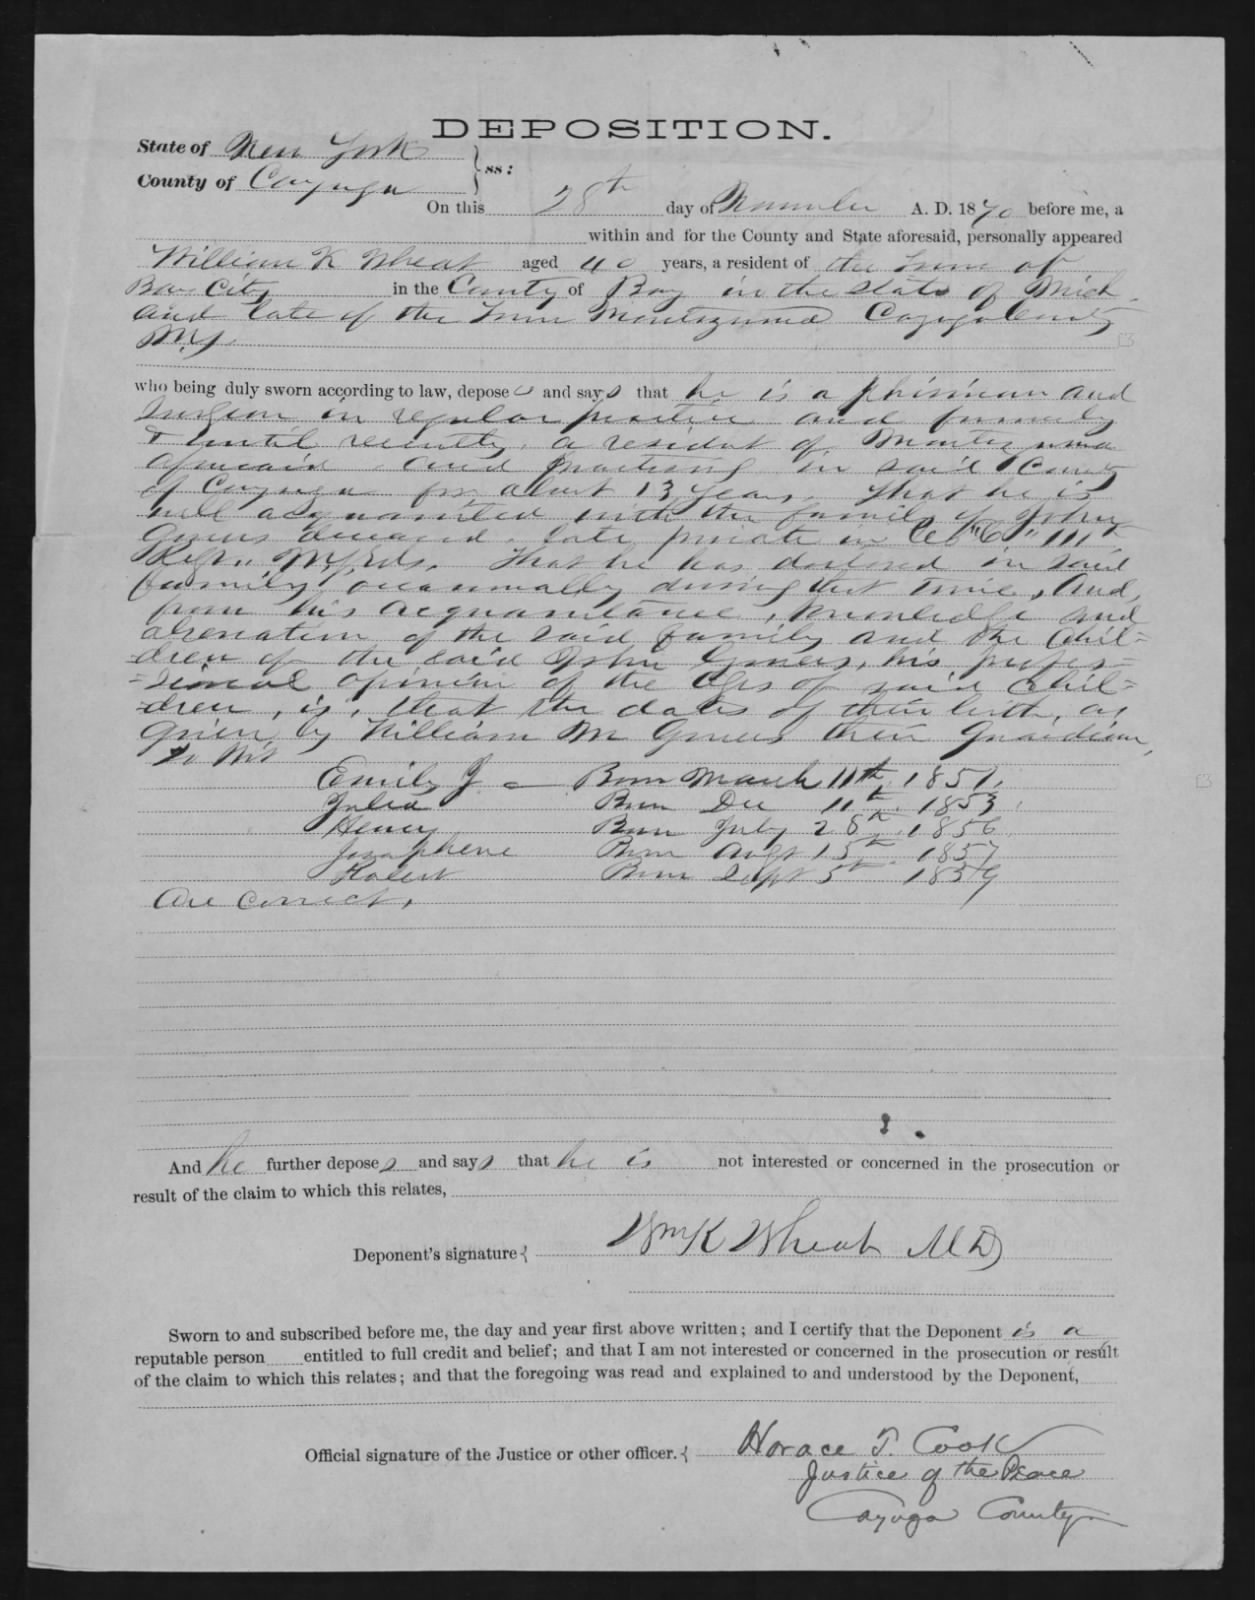 DEPOSITION.
State of New York
County of Cayuga } ss:
On this 28th day of November A. D. 1870 before me, a
within and for the County and State aforesaid, personally appeared
William K Wheat aged 40 years, a resident of the Town of
Bay City in the County of Bay in the State of Mich
and late of the Town Montezuma Cayuga County
N.Y.
who being duly sworn according to law, deposes and says that he is a Phisician and
Surgeon in regular practice and formerly
& until recently, a resident of Montezuma
aforesaid and practising in said County
of Cayuga for about 13 years. That he is
well acquainted with the family of John
deceased, late private in Co "C" 111th
Regt. N.Y. Vols. That he has doctored in said
family occasionally during that time, and,
from his acquaintance, knowledge and
observation of the said family and the Chil-
dren of the said John his profes-
-sional opinion of the ages of said Chil-
dren, is, that the dates of their birth, as
given by William M their Guardian,
to wit
Emily J - Born March 11th 1851,
Julia Born Dec 11th 1853,
Henry Born July 28th, 1856
Josephene Born Augt 15th 1857
Robert Born Sept 5th 1859
are correct.
And he further deposes and says that he is not interested or concerned in the prosecution or
result of the claim to which this relates,
Deponent's signature { Wm K Wheat M D
Sworn to and subscribed before me, the day and year first above written; and I certify that the Deponent is a
reputable person entitled to full credit and belief; and that I am not interested or concerned in the prosecution or result
of the claim to which this relates; and that the foregoing was read and explained to and understood by the Deponent,
Official signature of the Justice or other officer. { Horace T. Cook
Justice of the Peace
Cayuga County